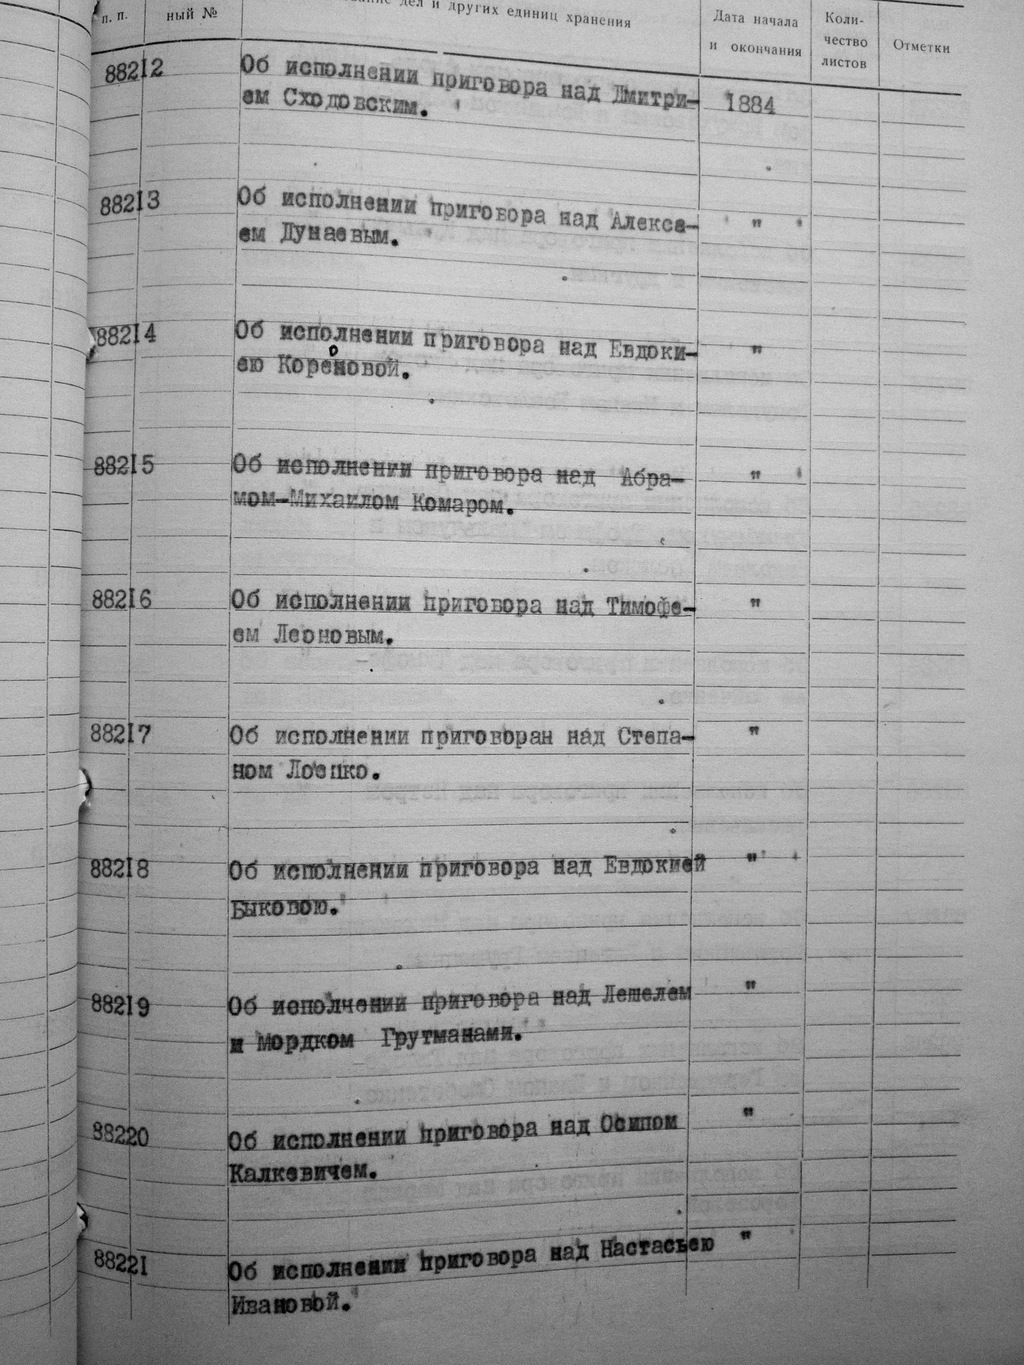 п. п.
ный №
дел и других единиц хранения
Дата начала
и окончания
Коли-
чество
листов
Отметки
88212
Об исполнении приговора над Дмитри-
ем Сходовским.
1884
88213
Об исполнении приговора над Алексе-
ем Дунаевым.
"
88214
Об исполнении приговора над Евдоки-
ею Кореновой.
о
"
88215
Об исполнении приговора над Абра-
мом-Михаилом Комаром.
"
88216
Об исполнении приговора над Тимофе-
ем Леоновым.
"
88217
Об исполнении приговоран над Степа-
ном Лоепко.
"
88218
Об исполнении приговора над Евдокией
Быковою.
"
88219
Об исполнении приговора над Лешелем
и Мордком Грутманами.
"
88220
Об исполнении приговора над Осипом
Калкевичем.
"
88221
Об исполнении приговора над Настасьею
Ивановой.
"